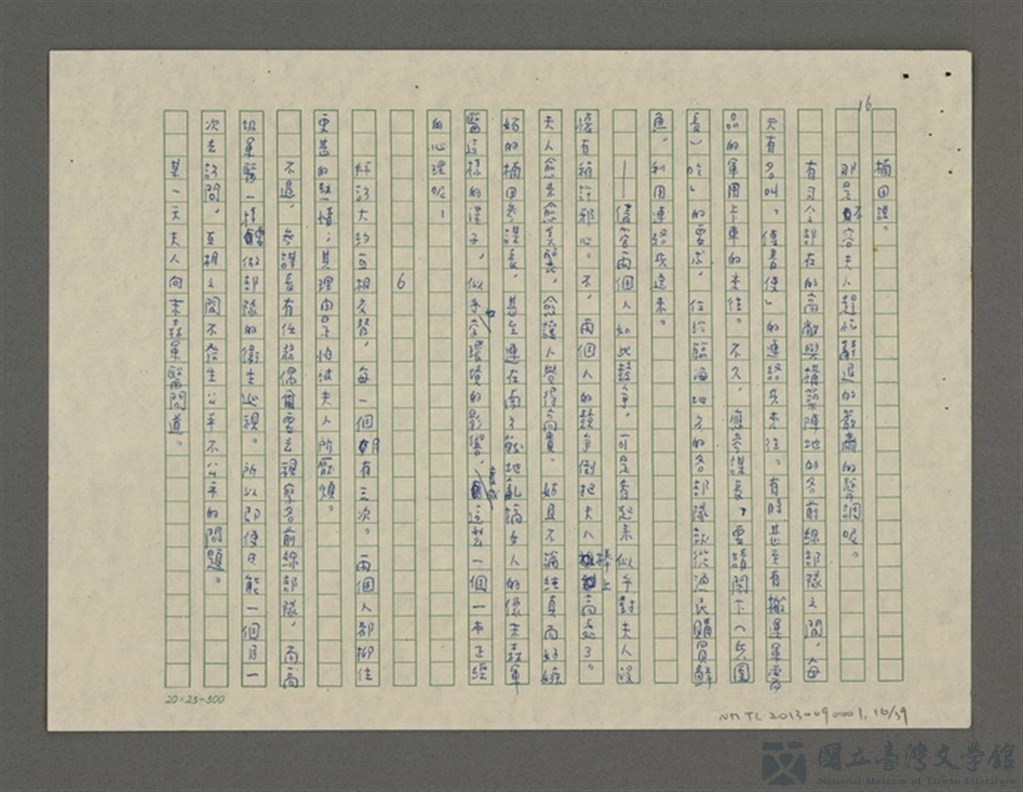 16
楠田說。
那是不容夫人趕忙辭退的嚴肅的聲調呢。
有司令部在的高敞與構築陣地的各前線部隊之間,每
天有名叫「傳書使」的連絡兵來往。有時甚至有搬運軍需
品的軍用卡車的來往。不久,應參謀長「要請閣下(兵團
長)吃」的要求,位於臨海地方的各部隊就從漁民購買鮮
魚,利用連絡兵送來。
——儘管兩個人如此競爭,可是看起來似乎對夫人沒
懷有種許邪心。不,兩個人的競爭倒把夫人捧上高處了。
夫人愈來愈美豔,愈讓人覺得高貴。姑且不論純真而好嫉
妒的楠田參謀長,甚至連在南方戰地亂搞女人的像末森軍
醫這樣的漢子,似乎也受環境的影響,變成這麼一個一本正經
的心理呢!
6
採訪大約互相交替,每一個月有三次。兩個人都抑住
更甚的熱情;其理由是怕被夫人所厭煩。
不過,參謀長有任務偶爾要去視察各前線部隊,而高
級軍醫一樣要做部隊的衛生巡視。所以即使只能一個月一
次去訪問,互相之間不發生公平不公平的問題。
某一天夫人向末森軍醫問道。
20×25=500
NMTL 2013-090001. 16/39
國立臺灣文學館
National Museum of Taiwan Literature